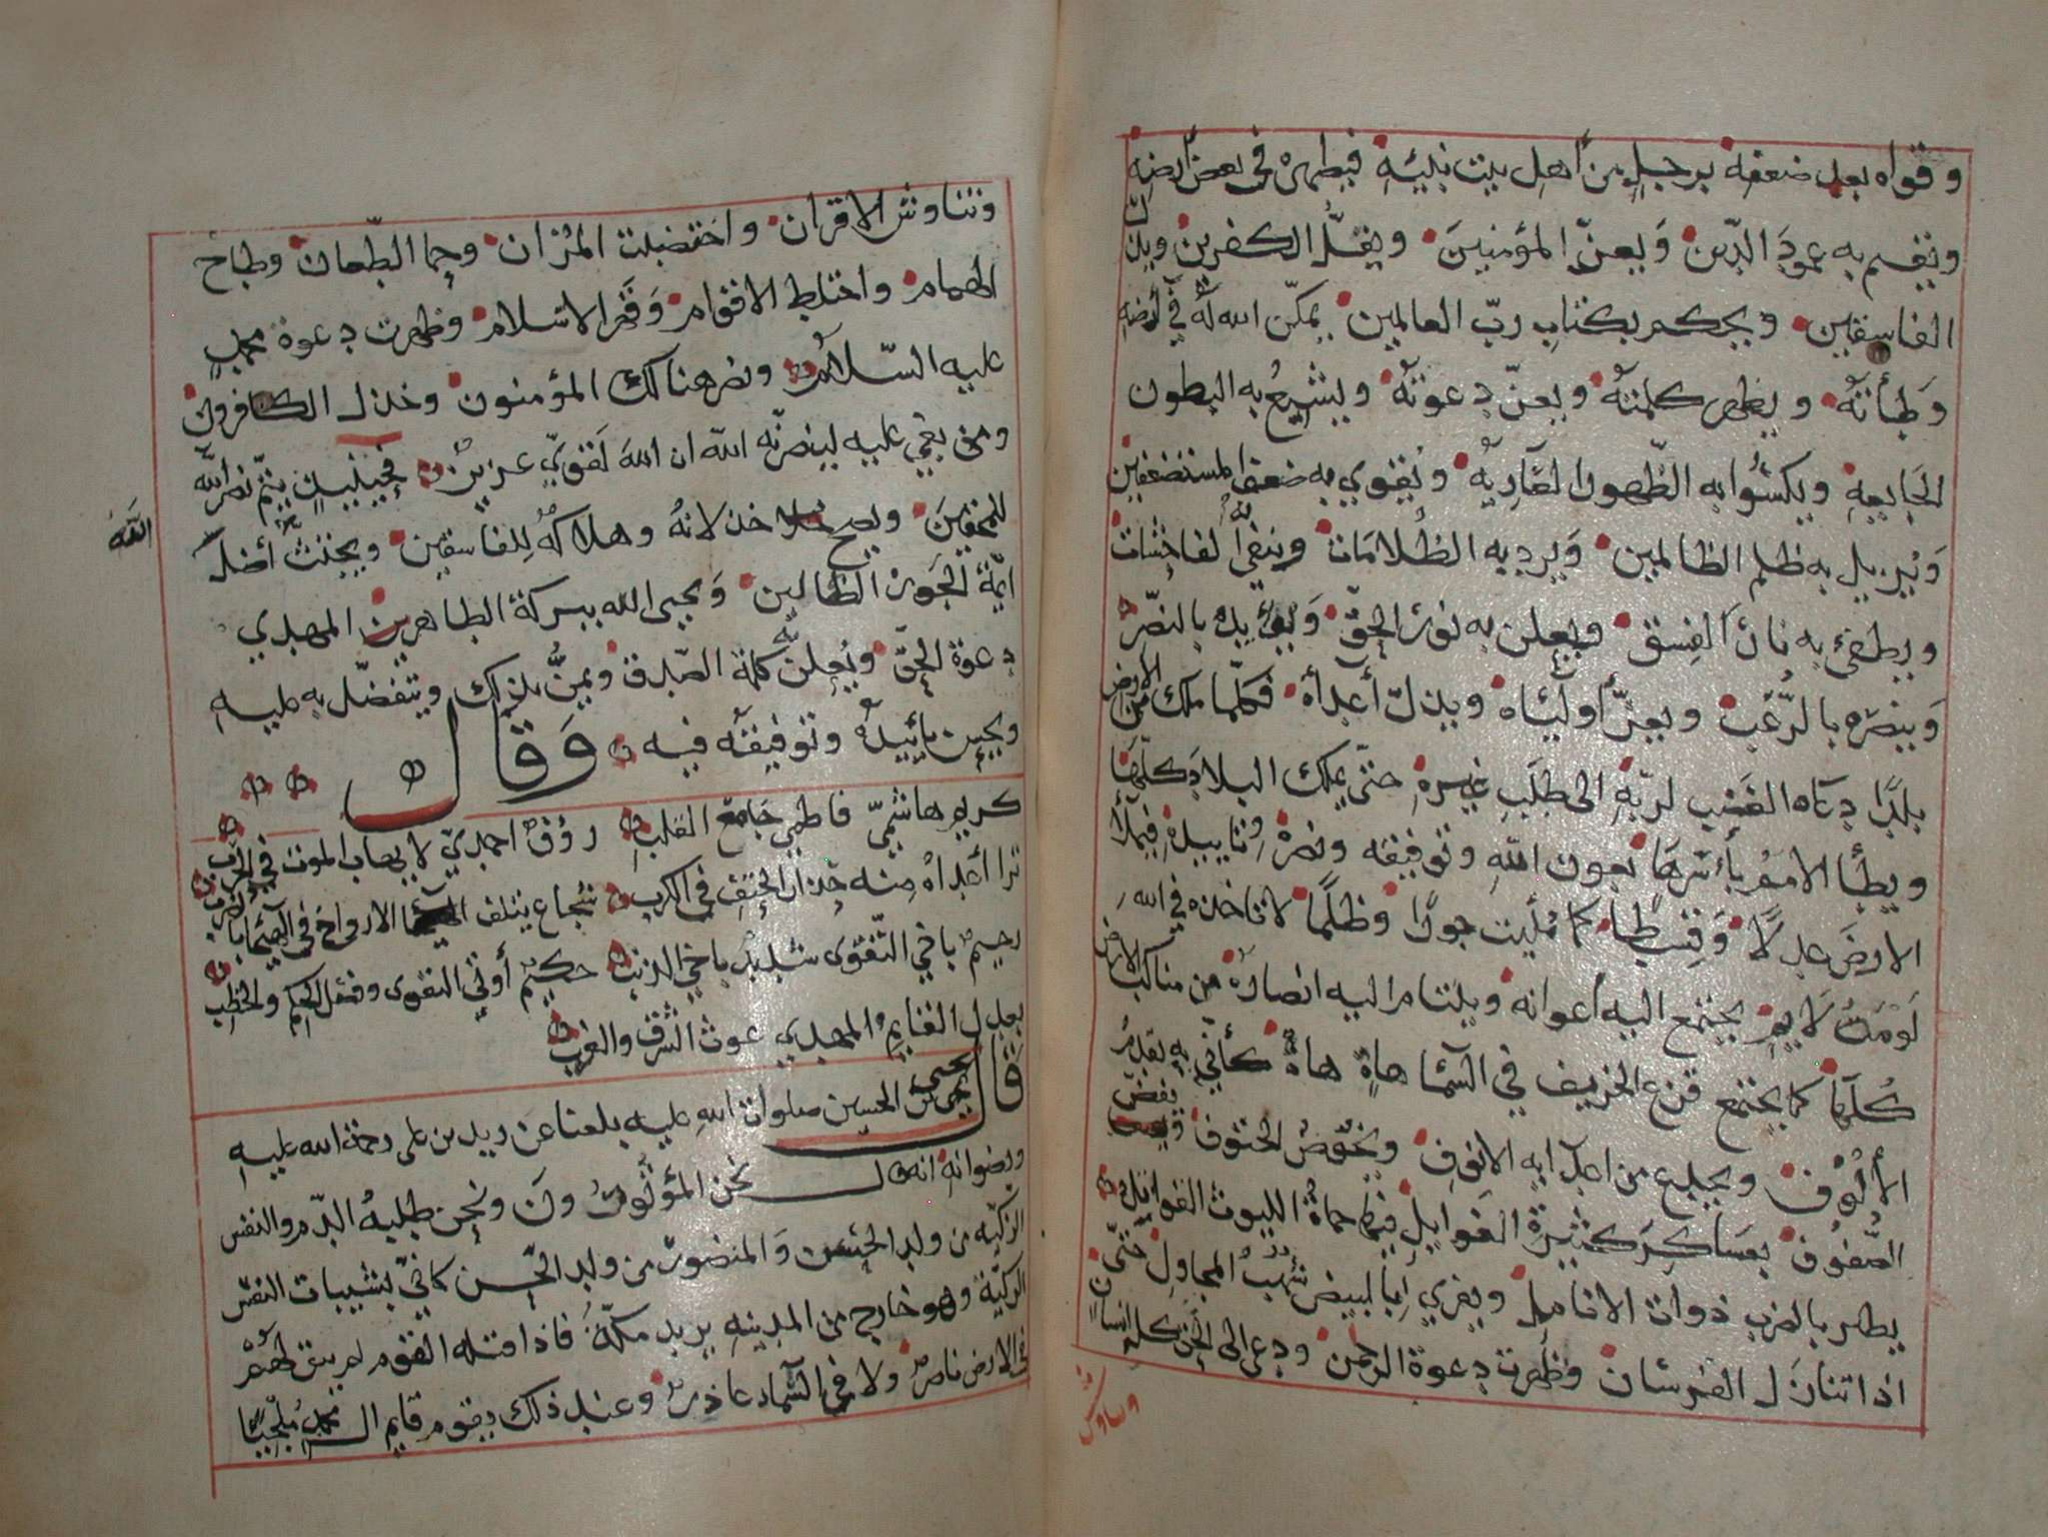 وقواه بعد ضعفه برجل من اهل بيت نبيه فيظهره في بعض أرضه
ويقيم به عمود الدين ويعز المؤمنين ويقل الكفرين ويذل
الفاسقين ويحكم بكتاب رب العالمين يمكن الله له في أرضه
وطأته ويظهر كلمته ويعز دعوته ويشبع به البطون
الجايعة ويكسوا به الظهور العارية ويقوي به ضعف المستضعفين
ويزيل به ظلم الظالمين ويرد به الظلامات وينفي الفاحشات
ويطفئ به نار الفسق ويعلن به نور الحق ويؤيده بالنصر
وينصره بالرعب ويعز أولياه ويذل أعدآه فكلما ملك من الارض
بلدا دعاه الغضب لربه الى طلب غيره حتى يملك البلاد كلها
ويطأ الامم بأسرها بعون الله وتوفيقه ونصره وتاييده فيملأ
الارض عدلا وقسطا كما مليت جورا وظلما لا تاخذه في الله
لومة لايم يجتمع اليه أعوانه ويلتام اليه انصاره من مناكب الارض
كلها كما يجتمع قزع الخريف في السما هاه هاه كأني به يقدم
الألوف ويجدع من اعدآيه الانوف ويخوض الحتوف ويفض
الصفوف بعساكر كثيرة القوابل فيها حماة الليوث القواتل
يطهر بالضرب ذوات الانامل ويفري بالبيض شهب المجاول حتى
اذا تنازل الفرسان وظهرت دعوة الرحمن ودعى الى الحق كل انسان
وتناوش
وتناوش الاقران واختضبت المران وحما الطعان وطاح
الهمام واختلط الاقوام وقهر الاسلام وظهرت دعوة محمد
عليه السلام ونصر هنالك المؤمنون وخذل الكافرون
ومن بغي عليه لينصرنه الله ان الله لقوي عزيز فحينيذ يتم نصر الله
للمحقين ويصح خذلانه وهلاكه للفاسقين ويجتث أصل
الله
ايمة الجور الظالمين ويحيى الله ببركة الطاهرين المهدي
دعوة الحق ويعلن كلمة الصدق ويمن بذلك ويتفضل به عليه
ويحسن تأييده وتوفيقه فيه وقال
كريم هاشمي فاطمي جامع القلب رؤف احمدي لا يهاب الموت في الحرب
ترا أعداه منه حذار الحتف في الكرب شجاع يتلف الارواح في الهيجا بالضرب
رحيم باخي التقوى شديد باخي الذنب حكيم أوتي التقوى وفصل الحكم والخطب
بعدل القايم المهدي غوث الشرق والغرب
قال يحيى بن الحسين صلوات الله عليه بلغنا عن زيد بن على رحمة الله عليه
ورضوانه انه قال نحن المؤتورون ونحن طلبة الدم والنفس
الزكيه من ولد الحسن والمنصور من ولد الحسن كاني بشيبات النفس
الزكية وهو خارج من المدينه يريد مكة فاذا قتله القوم لم يبق لهم
في الارض ناصر ولا في السماء عاذر وعند ذلك يقوم قايم ال محمد ملجيا